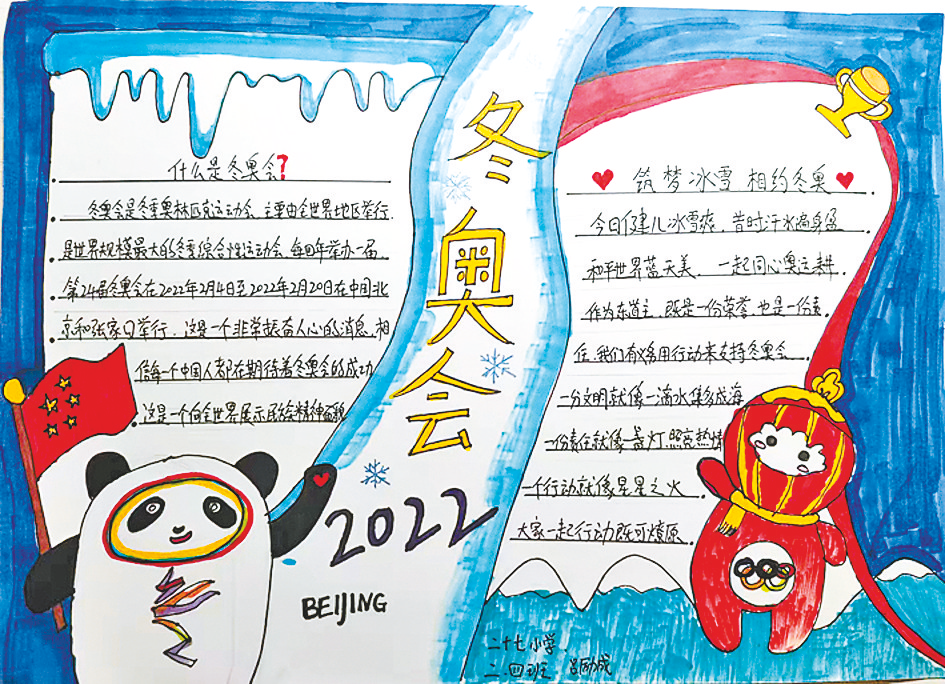 什么是冬奥会?
冬奥会是冬季奥林匹克运动会.主要由全世界地区举行.
是世界规模最大的冬季综合性运动会.每四年举办一届.
第24届冬奥会在2022年2月4日至2022年2月20日在中国北
京和张家口举行.这是一个非常振奋人心的消息.相
信每一个中国人都在期待着冬奥会的成功
这是一个向全世界展示民族精神面貌
冬奥会
2022
BEIJING
筑梦冰雪 相约冬奥
今日健儿冰雪爽.昔时汗水满身盈
和平世界蓝天美.一起同心奥运耕.
作为东道主.既是一份荣誉.也是一份责
任.我们有义务用行动来支持冬奥会
一分文明就像一滴水集多成海
一份责任就像一盏灯.照亮热情
一个行动就像星星之火.
大家一起行动既可燎原.
二十七小学
二.四班 吕励成